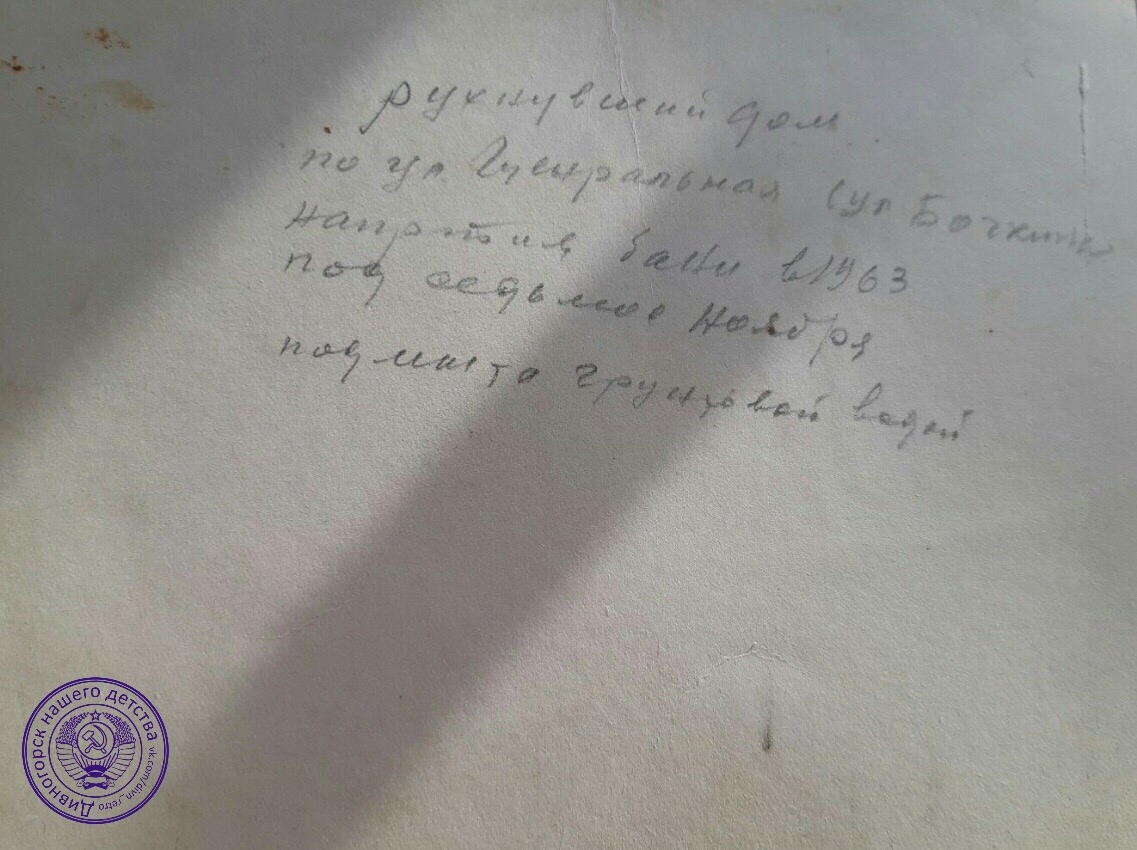 рухнувший дом
по ул Центральная (ул Бочкина
напротив бани в 1963
под седьмое ноября
подмыто грунтовой водой
Дивногорск нашего детства
vk.com/divn_retro